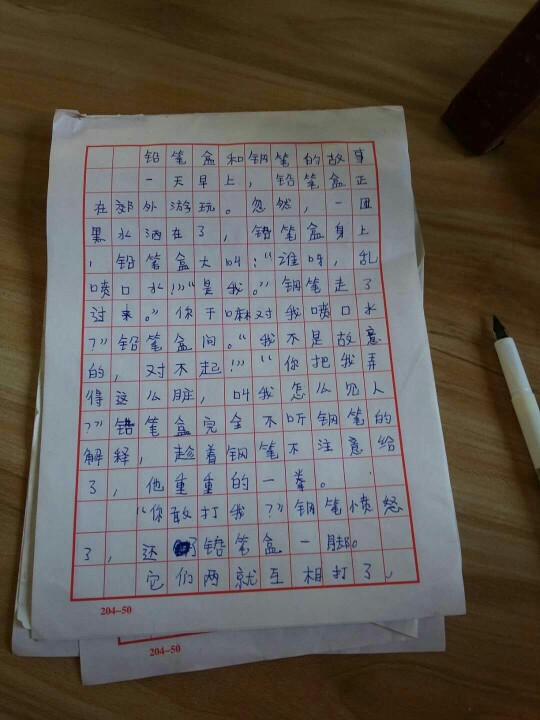 铅笔盒和钢笔的故事
一天早上，铅笔盒正
在郊外游玩。忽然，一团
黑水洒在了，铅笔盒身上
，铅笔盒大叫："谁呀，乱
喷口水！""是我。"钢笔走了
过来。"你干嘛对我喷口水
？"铅笔盒问。"我不是故意
的，对不起！""你把我弄
得这么脏，叫我怎么见人
？"铅笔盒完全不听钢笔的
解释，趁着钢笔不注意给
了，他重重的一拳。
"你敢打我？"钢笔愤怒
了，还了铅笔盒一脚。
它们两就互相打了，
204-50
204-50